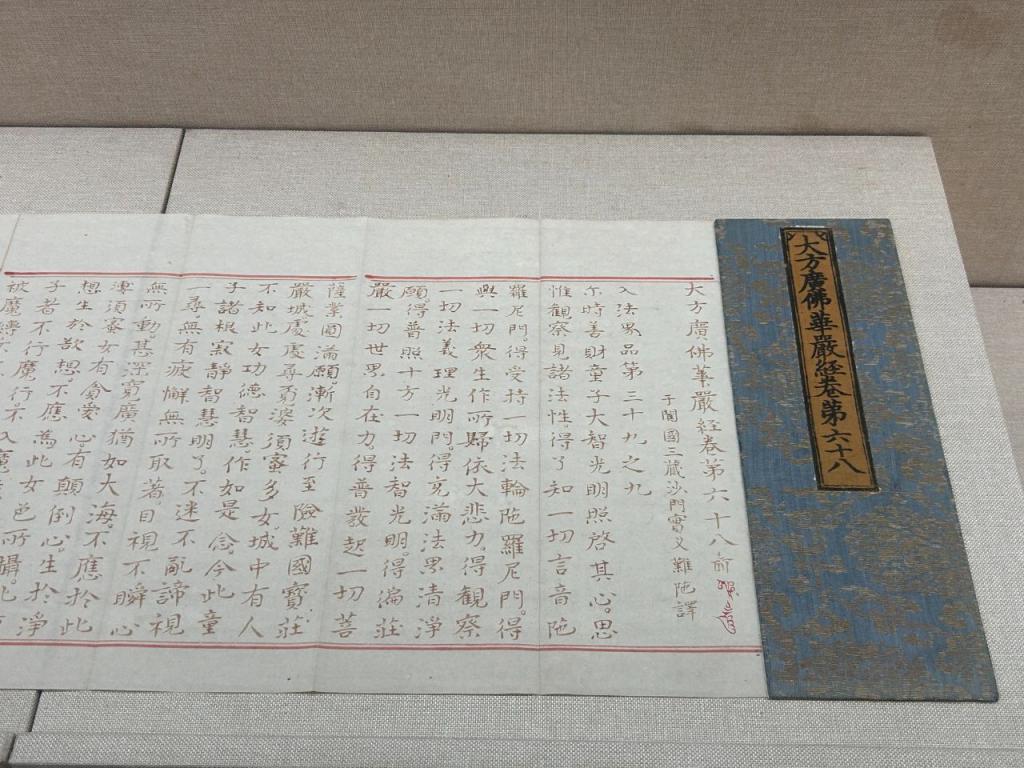 大方廣佛華嚴經卷第六十八
大方廣佛華嚴經卷第六十八 俞
于闐國三藏沙門實叉難陁譯
入法界品第三十九之九
尒時善財童子大智光明照啓其心。思
惟觀察見諸法性得了知一切言音陁
羅尼門。得受持一切法輪陁羅尼門。得
與一切衆生作所歸依大悲力。得觀察
一切法義理光明門。得充滿法界清淨
願。得普照十方一切法智光明。得徧莊
嚴一切世界自在力得普發起一切菩
薩業圓滿願。漸次遊行至險難國寶莊
嚴城處處尋覓婆須蜜多女。城中有人
不知此女功德智慧。作如是念今此童
子諸根寂靜智慧明了。不迷不亂諦視
一尋無有疲懈無所取著。目視不瞬心
無所動。甚深寬廣猶如大海。不應於此
婆須蜜女有貪愛心。有顛倒心。生於淨
想生於欲想。不應為此女色所攝。此
子者不行魔行不入魔
被魔縛不